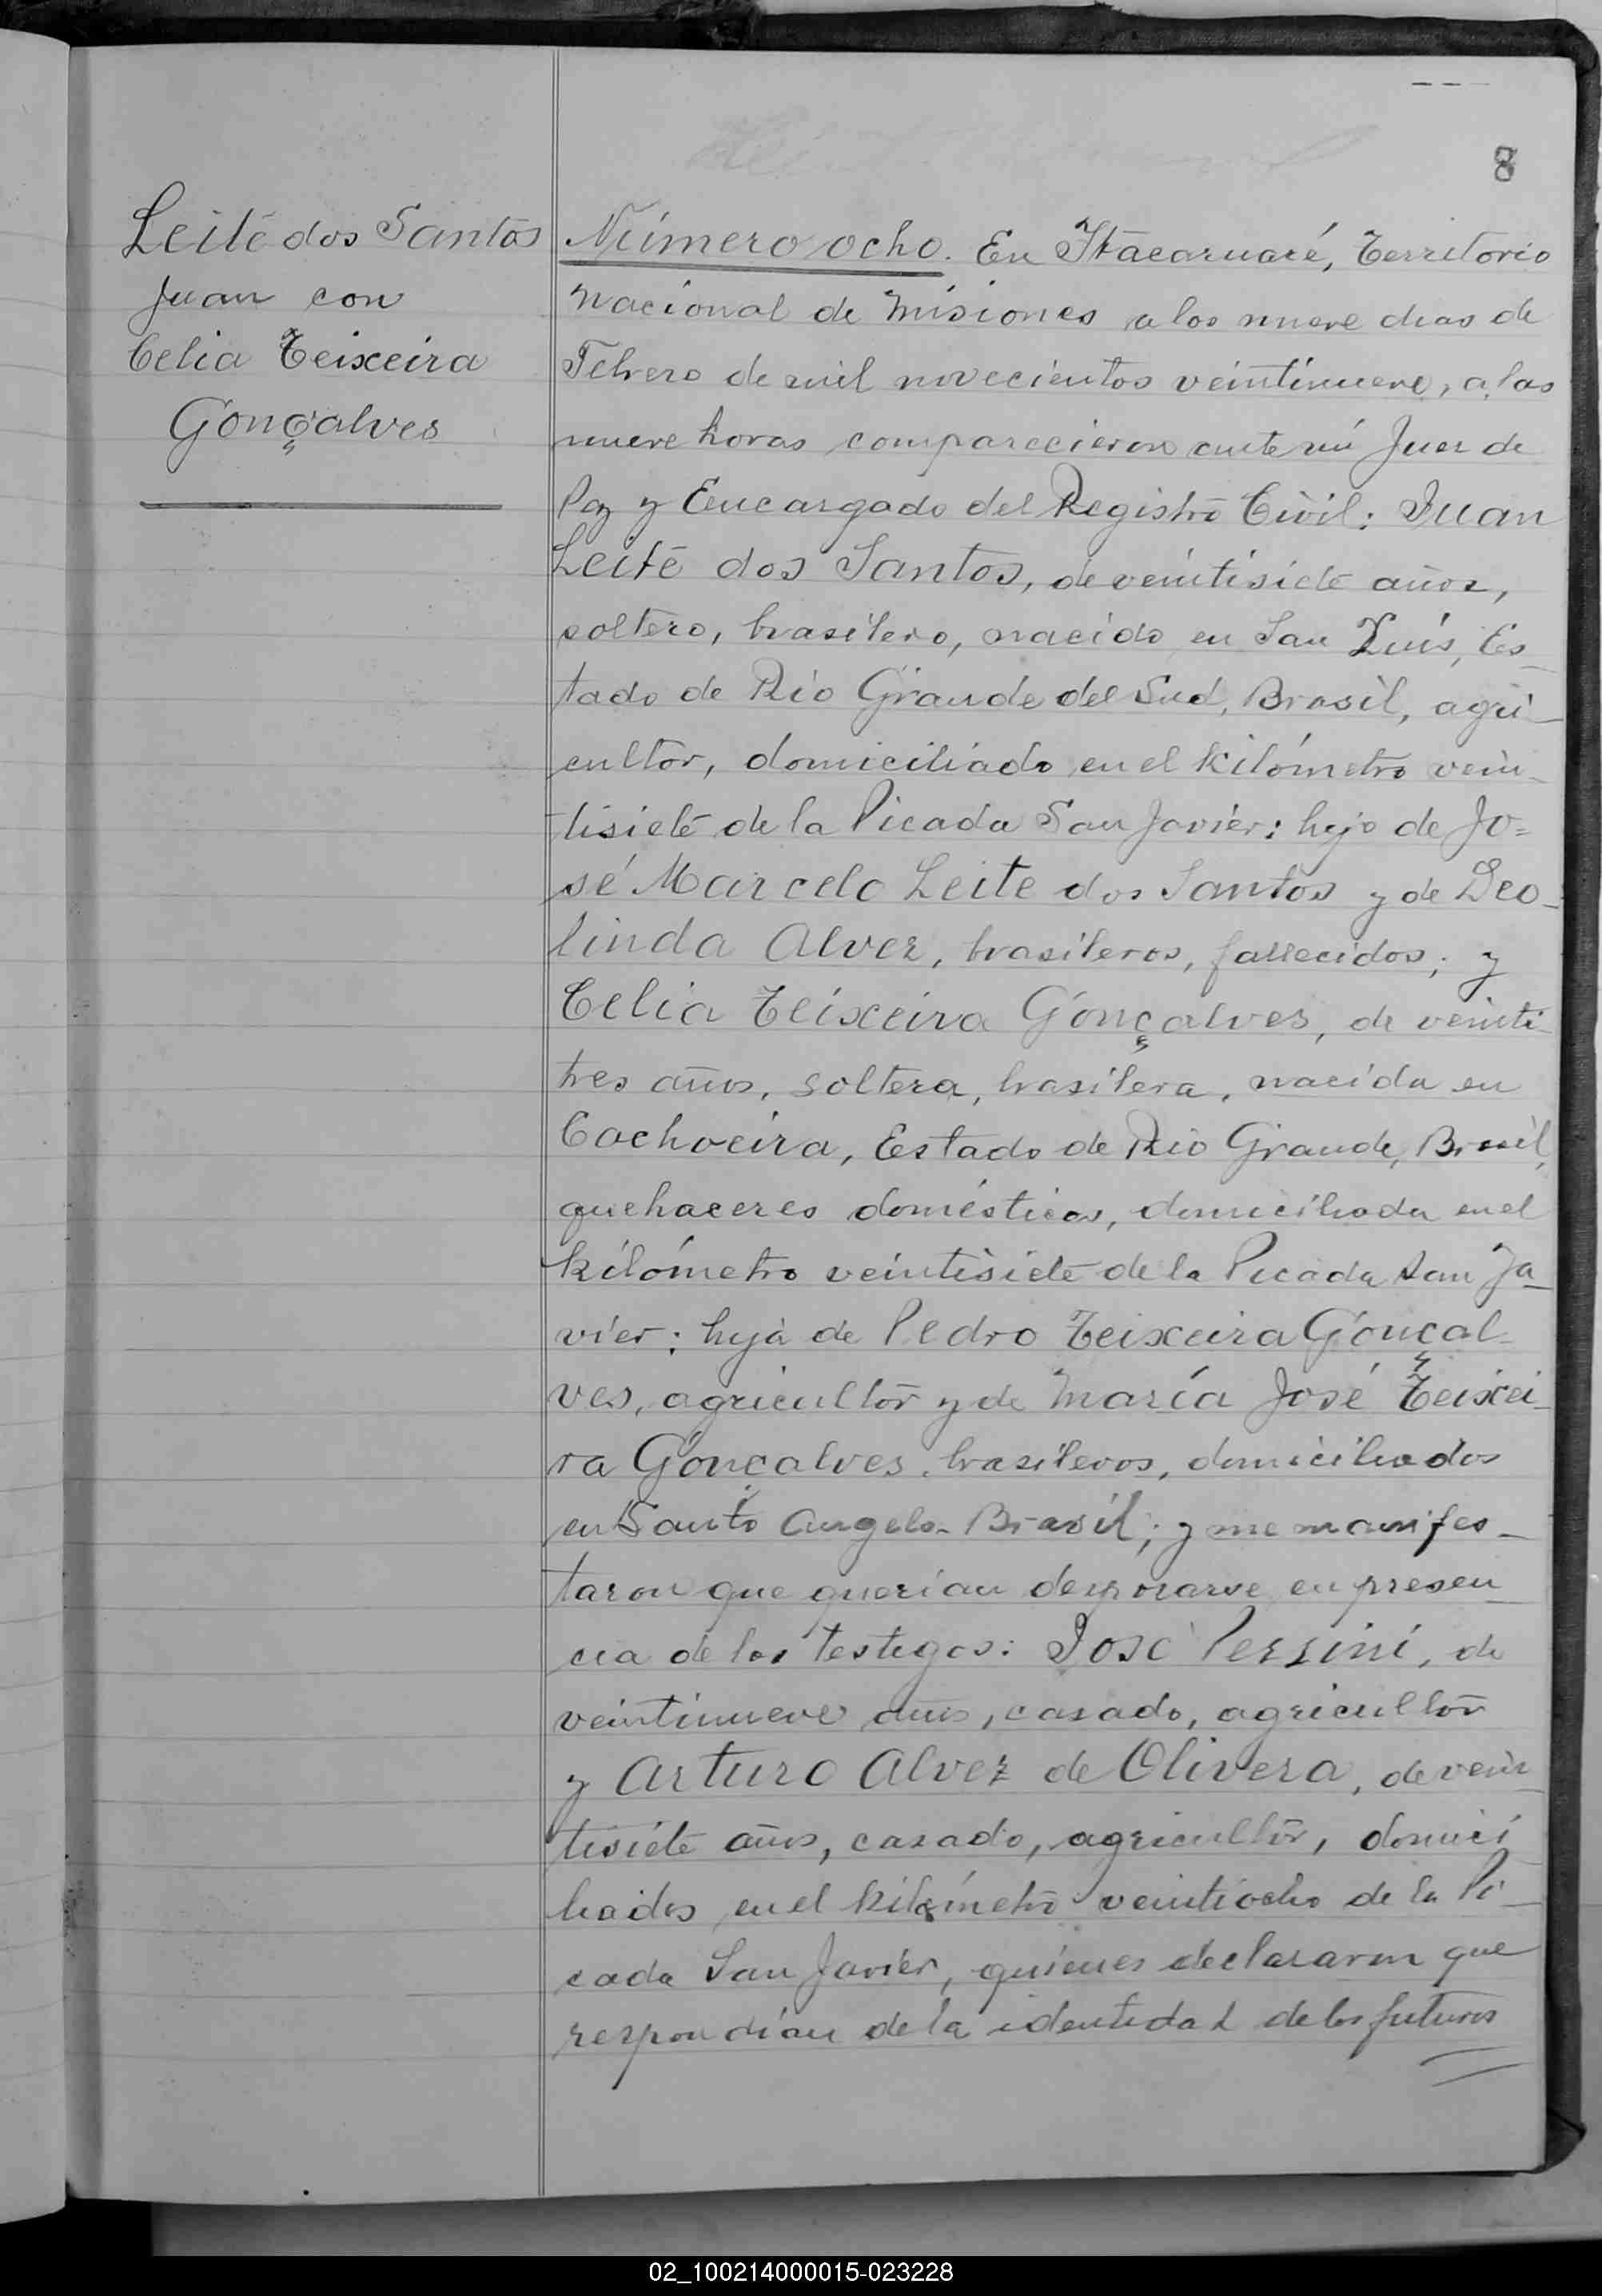 8
Leite dos Santos
Juan con
Celia Teixeira
Gonçalves
Número ocho. En Itacaruaré, Territorio
Nacional de Misiones a los nueve dias de
Febrero de mil novecientos veintinueve, a las
nueve horas comparecieron ante mí Juez de
Paz y Encargado del Registro Civil: Juan
Leite dos Santos, de veintisiete años,
soltero, brasilero, nacido en San Luis, Es-
tado de Rio Grande del Sud, Brasil, agri-
cultor, domiciliado en el kilómetro vein-
tisiete de la Picada San Javier: hijo de Jo=
sé Marcelo Leite dos Santos y de Deo-
linda Alvez, brasileros, fallecidos; y
Celia Teixeira Gonçalves, de veinti-
tres años, soltera, brasilera, nacida en
Cachoeira, Estado de Rio Grande, Brasil,
quehaceres domésticos, domiciliada en el
kilómetro veintisiete de la Picada San Ja-
vier: hija de Pedro Teixeira Gonçal-
ves, agricultor y de María José Teixei-
ra Gonçalves, brasileros, domiciliados
en Santo Angelo- Brasil; y me manifes-
taron que querian desposarse en presen-
cia de los testigos: José Perzini, de
veintinueve años, casado, agricultor
y Arturo Alvez de Olivera, de vein-
tisiete años, casado, agricultor, domici
liados en el kilómetro veintiocho de la Pi-
cada San Javier, quienes declararon que
respondían de la identidad de los futuros
02_100214000015-023228